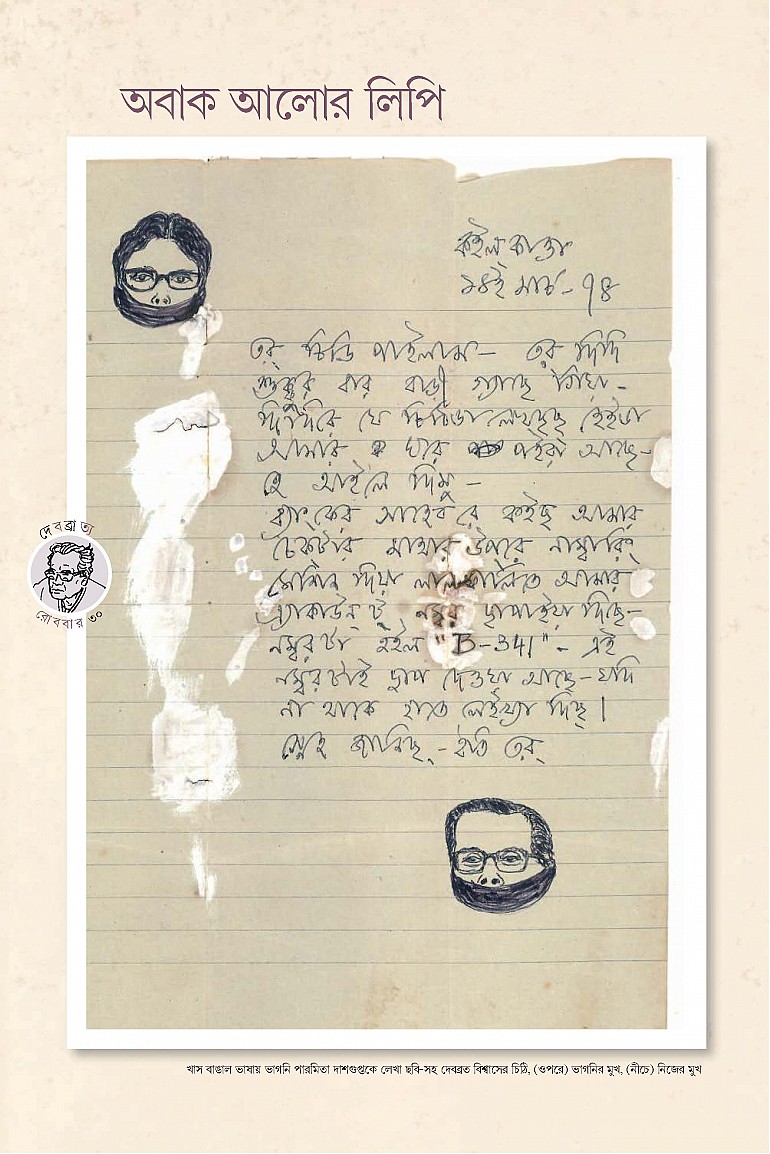 অবাক আলোর লিপি
কইল্ কাত্তা
১৪ই মার্চ - ৭৪
তর্ চিডি পাইলাম - তর্ দিদি
শুক্কুর বার বাড়ী গ্যাছে গিয়া -
দিদিরে যে চিঠিডা লেখছছ্ হেইডা
আমার ঘরে পইরা আছে -
হে আইলে দিমু -
ব্যাংকের সাহেব রে কইছ্ আমার
চেকটার মাথার উপরে নাম্বারিং
মেশিন দিয়া লাল কালিতে আমার
এ্যাকাউন্ট্ নম্বর ছাপাইয়া দিছে -
নম্বরটা হইল "B-341" - এই
নম্বরটাই ছাপ দেওয়া আছে - যদি
না থাকে হাতে লেইখ্যা দিছ্ ।
স্নেহ জানিছ্ - ইতি তর্
দেবব্রত
রোববার ৩০
খাস বাঙাল ভাষায় ভাগনি পারমিতা দাশগুপ্তকে লেখা ছবি-সহ দেবব্রত বিশ্বাসের চিঠি, (ওপরে) ভাগনির মুখ, (নীচে) নিজের মুখ